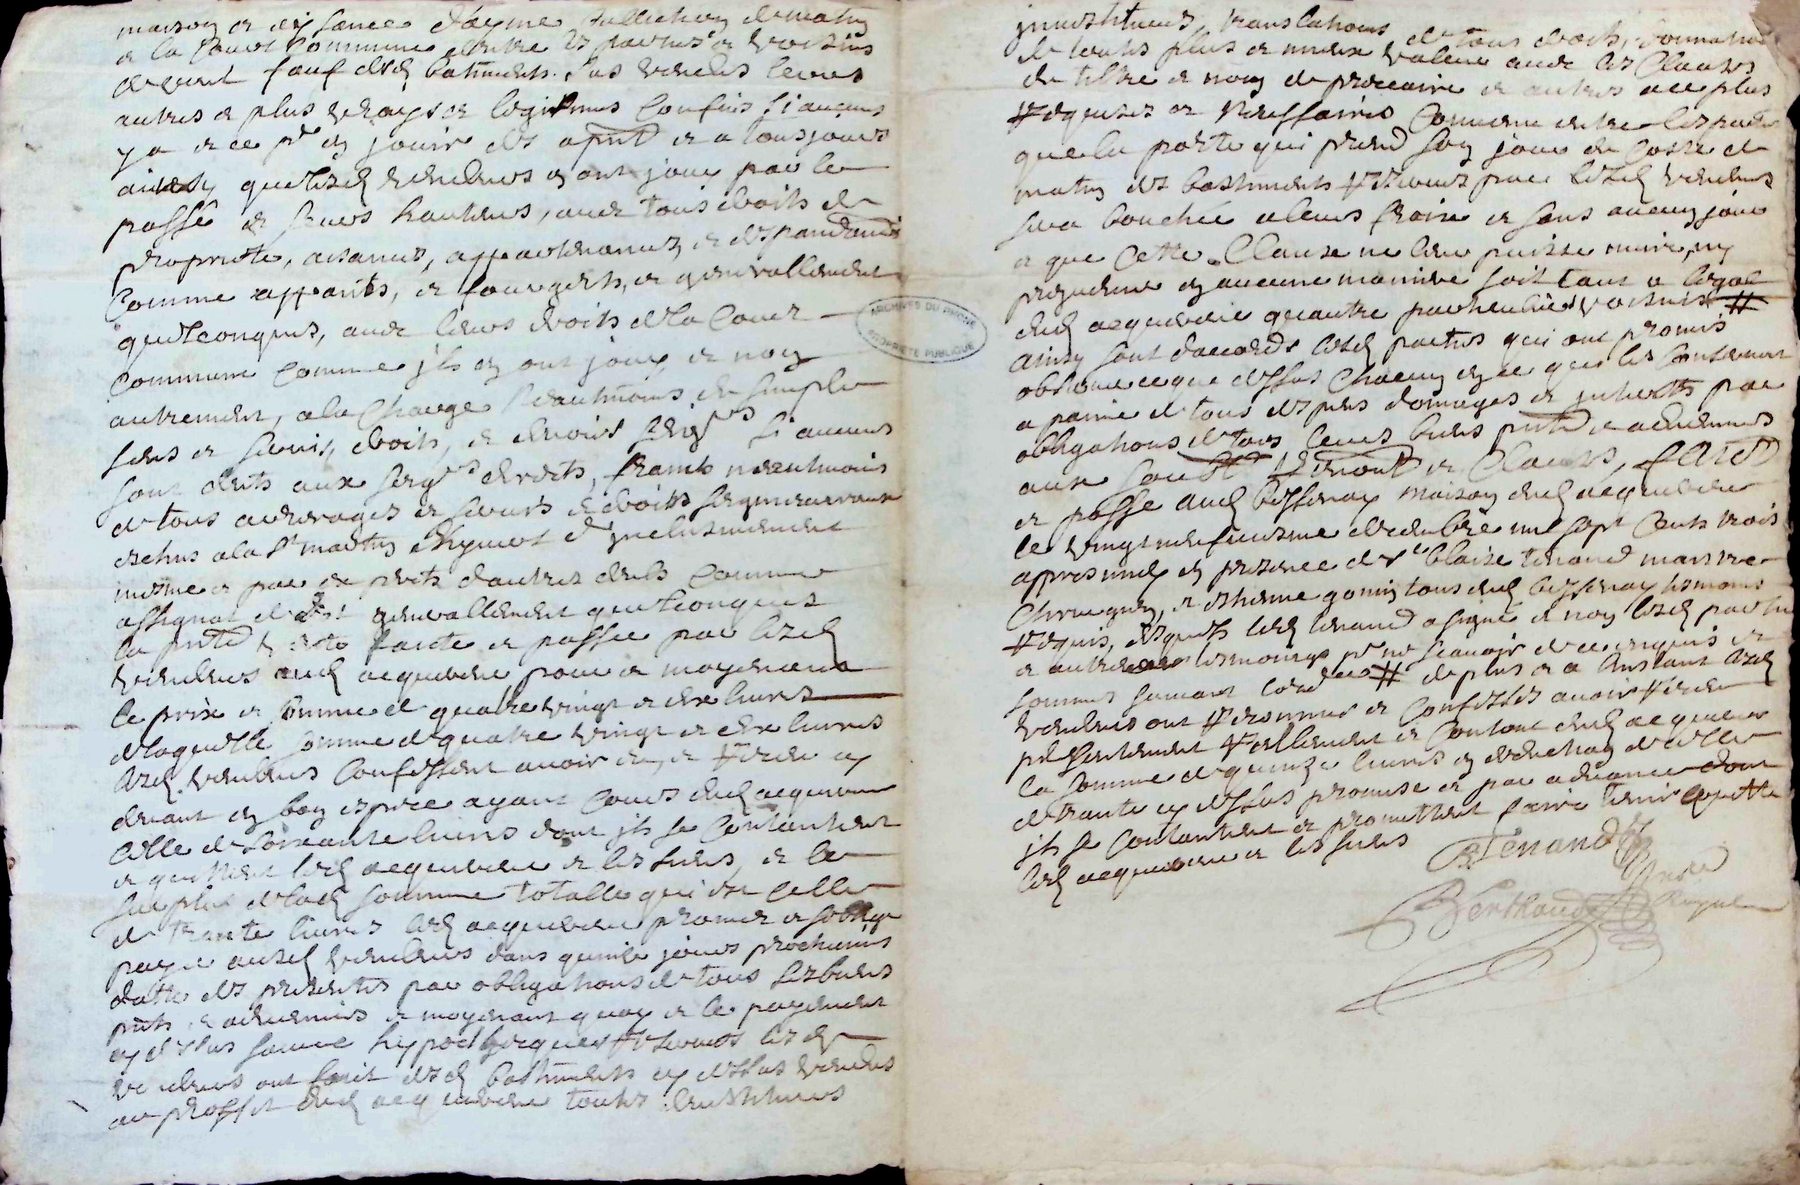 maison et aysance d'ayme Jullichon de matin
et la cour commune entre les parties et voisins
devent sauf desd batiments. Sus vendus leurs
autres et plus vrays et legitimes confins si aucuns
y a et ce pr en jouir des a pnt et a tousjours
ainsy que lesd vendeurs en ont jouy par le
passé et leurs hauteurs, avec tous droits de
proprieté, aisances, appartenances et despandances
comme appants, et fourgets, et generallement
quelconques, avec leurs droits de la cour
commune comme ils en ont jouy et non
autrement, a la charge neantmoins de simple
sens et servis, droits, et devoirs seigrs si aucuns
sont deubs aux seigrs directs, francs neantmoins
de tous arrerages et servis et droits seigneuriaux
escheus a la St martin dhyvert dr inclusivement
mesme et par ex près d'autres deubs comme
assignat generallement quelconques
la pnte vente faite et passée par lesd
vendeurs aud acquereur pour et moyenant
le prix et somme de quatre vingt et dix livres
de laquelle somme de quatre vingt et dix livres
lesd vendeurs confessent avoir eu, et receu cy
devant en bon espece ayant cours dud acquereur
celle de soixante livres dont ils se contantent
et quittent led acquereur et les siens, et le
surplus de lad somme totalle qui est celle
de trante livres led acquereur promet et soblige
payer ausd vendeurs dans quinze jours prochains
datte des presentes par obligations de tous ses biens
pnts et advenirs et moyenant quoy et le payement
cy dessus sauve hypotheques reservés lesd
vendeurs ont fait desd bastiments cy dessus vendus
au proffit dud acquereur toutes devestitures
investitures, translations de tous droits, donation
de toutes plus et mieux valeur avec les clauses
de tiltre et nom de precaire et autres ace plus
requises et necessaires convenu entre les parties
que la porte qui prend son jour du costé de
matin des bastiments reservés par lesd vendeurs
sera bouchée a leurs frais et sans aucun jour
et que cette clause ne leur puisse nuire, ny
prejudicier en aucune maniere soit tant a legal
dud acquereur qu'autre particuliers voisins #
ainsy sont d'accords lesd parties qui ont promis
observer ce que dessus chacun en ce qui les consernent
a painne de tous despens domages et interets par
obligations de tous leurs biens pnts et advenirs
aux soub renont et clauses, fait
et passé aud bessenay maison dud acquereur
le vingt neufieusme decembre mil sept cents trois
appres midy en presence de Sr blaise tenand maistre
chirurgien, et estienne gonin tous dud bessenay tesmoins
requis, desquels led tenand a signé et non lesd parties
et autre tesmoings pr ne scavoir de ce enquis et
sommés suivant lordce # de plus et a linstant lesd
vendeurs ont reconnus et confessés avoir receu
presentement reellement et contant dud acquereur
la somme de quinze livres en deduction de celle
de trante cy dessus promise et par advance dont
ils se contantent et promettent faire tenir quitte
led acquereur et les siens
B Tenand
Berthaud
Royal
ARCHIVES DU RHONE
PROPRIETE PUBLIQUE